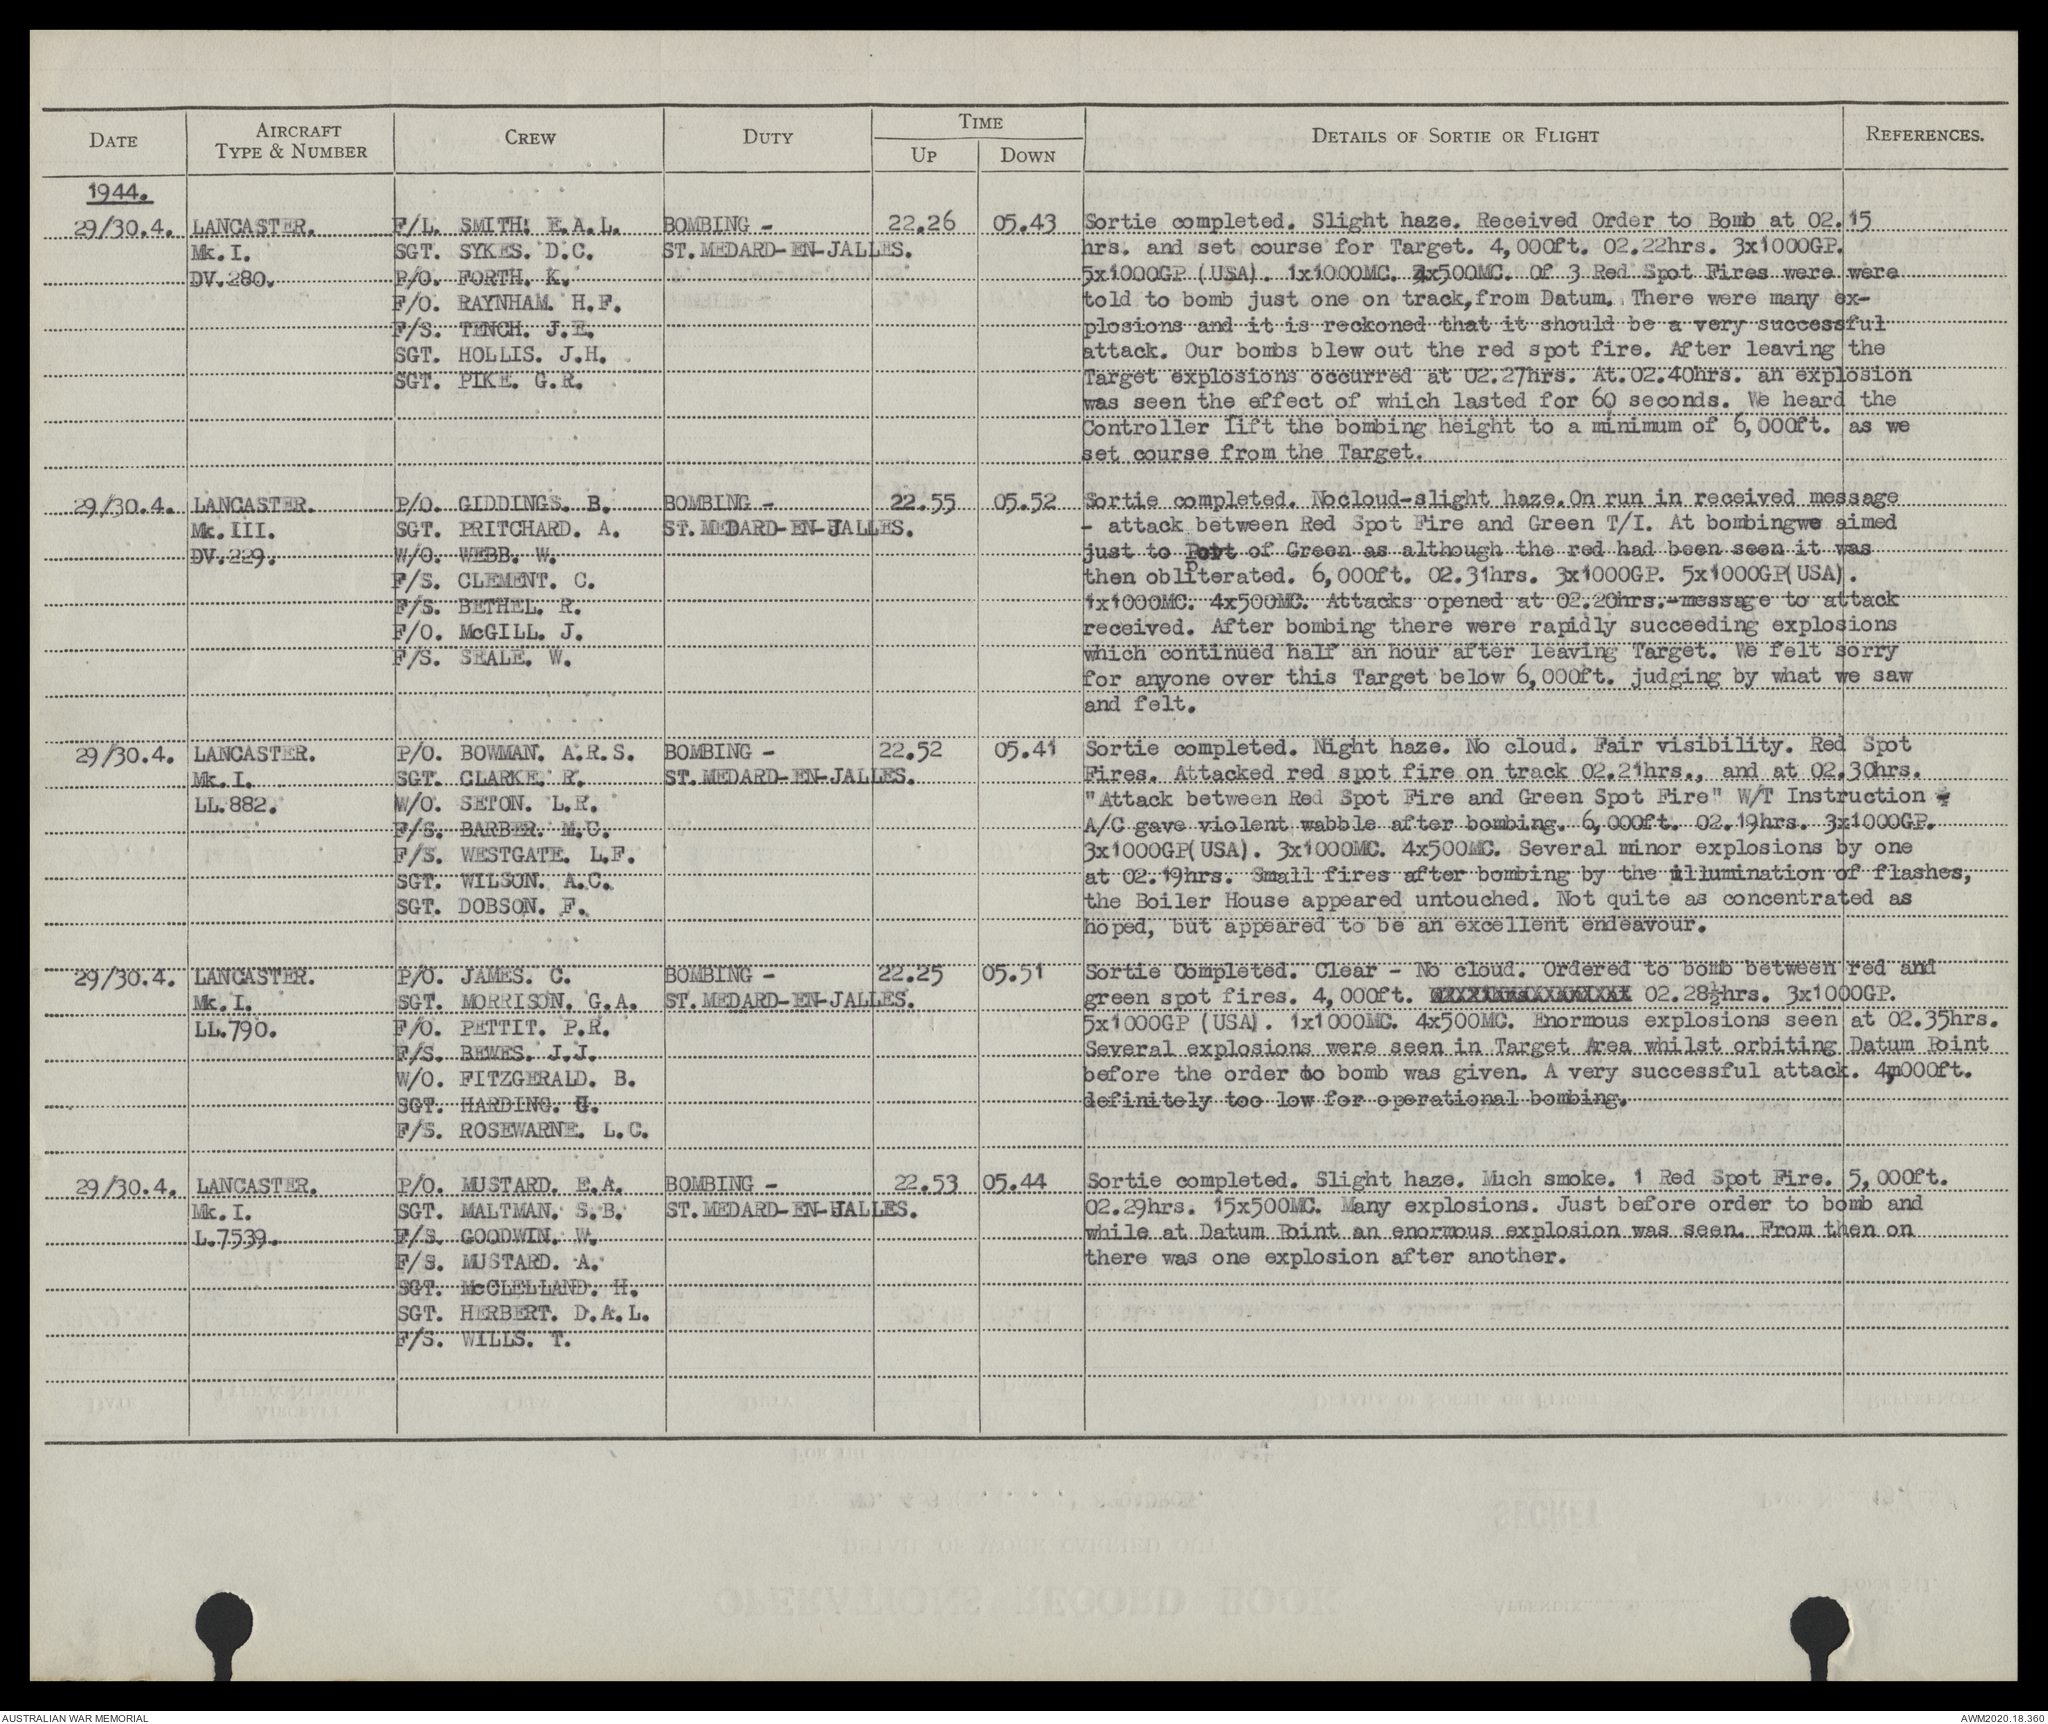 DATE AIRCRAFT TYPE & NUMBER CREW DUTY TIME UP DOWN DETAILS OF SORTIE OR FLIGHT REFERENCES.
1944.
29/30.4. LANCASTER. F/L. SMITH. E.A.L. BOMBING - 22.26 05.43 Sortie completed. Slight haze. Received Order to Bomb at 02.15
Mk.I. SGT. SYKES. D.C. ST.MEDARD-EN-JALLES. hrs. and set course for Target. 4,000ft. 02.22hrs. 3x1000GP.
DV.280. P/O. FORTH. K. 5x1000GP (USA). 1x1000MC. 4x500MC. Of 3 Red Spot Fires were were
F/O. RAYNHAM. H.F. told to bomb just one on track,from Datum. There were many ex-
F/S. TENCH. J.E. plosions and it is reckoned that it should be a very successful
SGT. HOLLIS. J.H. attack. Our bombs blew out the red spot fire. After leaving the
SGT. PIKE. G.R. Target explosions occurred at 02.27hrs. At.02.40hrs. an explosion
was seen the effect of which lasted for 60 seconds. We heard the
Controller lift the bombing height to a minimum of 6,000ft. as we
set course from the Target.
29/30.4. LANCASTER. P/O. GIDDINGS. B. BOMBING - 22.55 05.52 Sortie completed. Nocloud-slight haze.On run in received message
Mk.III. SGT. PRITCHARD. A. ST.MEDARD-EN-JALLES. - attack between Red Spot Fire and Green T/I. At bombingwe aimed
DV.229. W/O. WEBB. W. just to Port of Green as although the red had been seen it was
F/S. CLEMENT. C. then obliterated. 6,000ft. 02.31hrs. 3x1000GP. 5x1000GP(USA).
F/S. BETHEL. R. 1x1000MC. 4x500MC. Attacks opened at 02.20hrs.-message to attack
F/O. McGILL. J. received. After bombing there were rapidly succeeding explosions
F/S. SEALE. W. which continued half an hour after leaving Target. We felt sorry
for anyone over this Target below 6,000ft. judging by what we saw
and felt.
29/30.4. LANCASTER. P/O. BOWMAN. A.R.S. BOMBING - 22.52 05.41 Sortie completed. Night haze. No cloud. Fair visibility. Red Spot
Mk.I. SGT. CLARKE. R. ST.MEDARD-EN-JALLES. Fires. Attacked red spot fire on track 02.21hrs., and at 02.30hrs.
LL.882. W/O. SETON. L.R. "Attack between Red Spot Fire and Green Spot Fire" W/T Instruction -
F/S. BARBER. M.C. A/C gave violent wabble after bombing. 6,000ft. 02.19hrs. 3x1000GP.
F/S. WESTGATE. L.F. 3x1000GP(USA). 3x1000MC. 4x500MC. Several minor explosions by one
SGT. WILSON. A.C. at 02.19hrs. Small fires after bombing by the illumination of flashes,
SGT. DOBSON. F. the Boiler House appeared untouched. Not quite as concentrated as
hoped, but appeared to be an excellent endeavour.
29/30.4. LANCASTER. P/O. JAMES. C. BOMBING - 22.25 05.51 Sortie Completed. Clear - No cloud. Ordered to bomb between red and
Mk.I. SGT. MORRISON. G.A. ST.MEDARD-EN-JALLES. green spot fires. 4,000ft. 02.28½hrs. 3x1000GP.
LL.790. F/O. PETTIT. P.R. 5x1000GP (USA). 1x1000MC. 4x500MC. Enormous explosions seen at 02.35hrs.
F/S. REWES. J.J. Several explosions were seen in Target Area whilst orbiting Datum Point
W/O. FITZGERALD. B. before the order to bomb was given. A very successful attack. 4,000ft.
SGT. HARDING. definitely too low for operational bombing.
F/S. ROSEWARNE. L.C.
29/30.4. LANCASTER. P/O. MUSTARD. E.A. BOMBING - 22.53 05.44 Sortie completed. Slight haze. Much smoke. 1 Red Spot Fire. 5,000ft.
Mk.I. SGT. MALTMAN. S.B. ST.MEDARD-EN-JALLES. 02.29hrs. 15x500MC. Many explosions. Just before order to bomb and
L.7539. F/S. GOODWIN. W. while at Datum Point an enormous explosion was seen. From then on
F/S. MUSTARD. A. there was one explosion after another.
SGT. McCLELLAND. H.
SGT. HERBERT. D.A.L.
F/S. WILLS. T.
AUSTRALIAN WAR MEMORIAL AWM2020.18.360